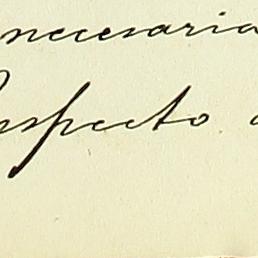 necesaria
Respecto a